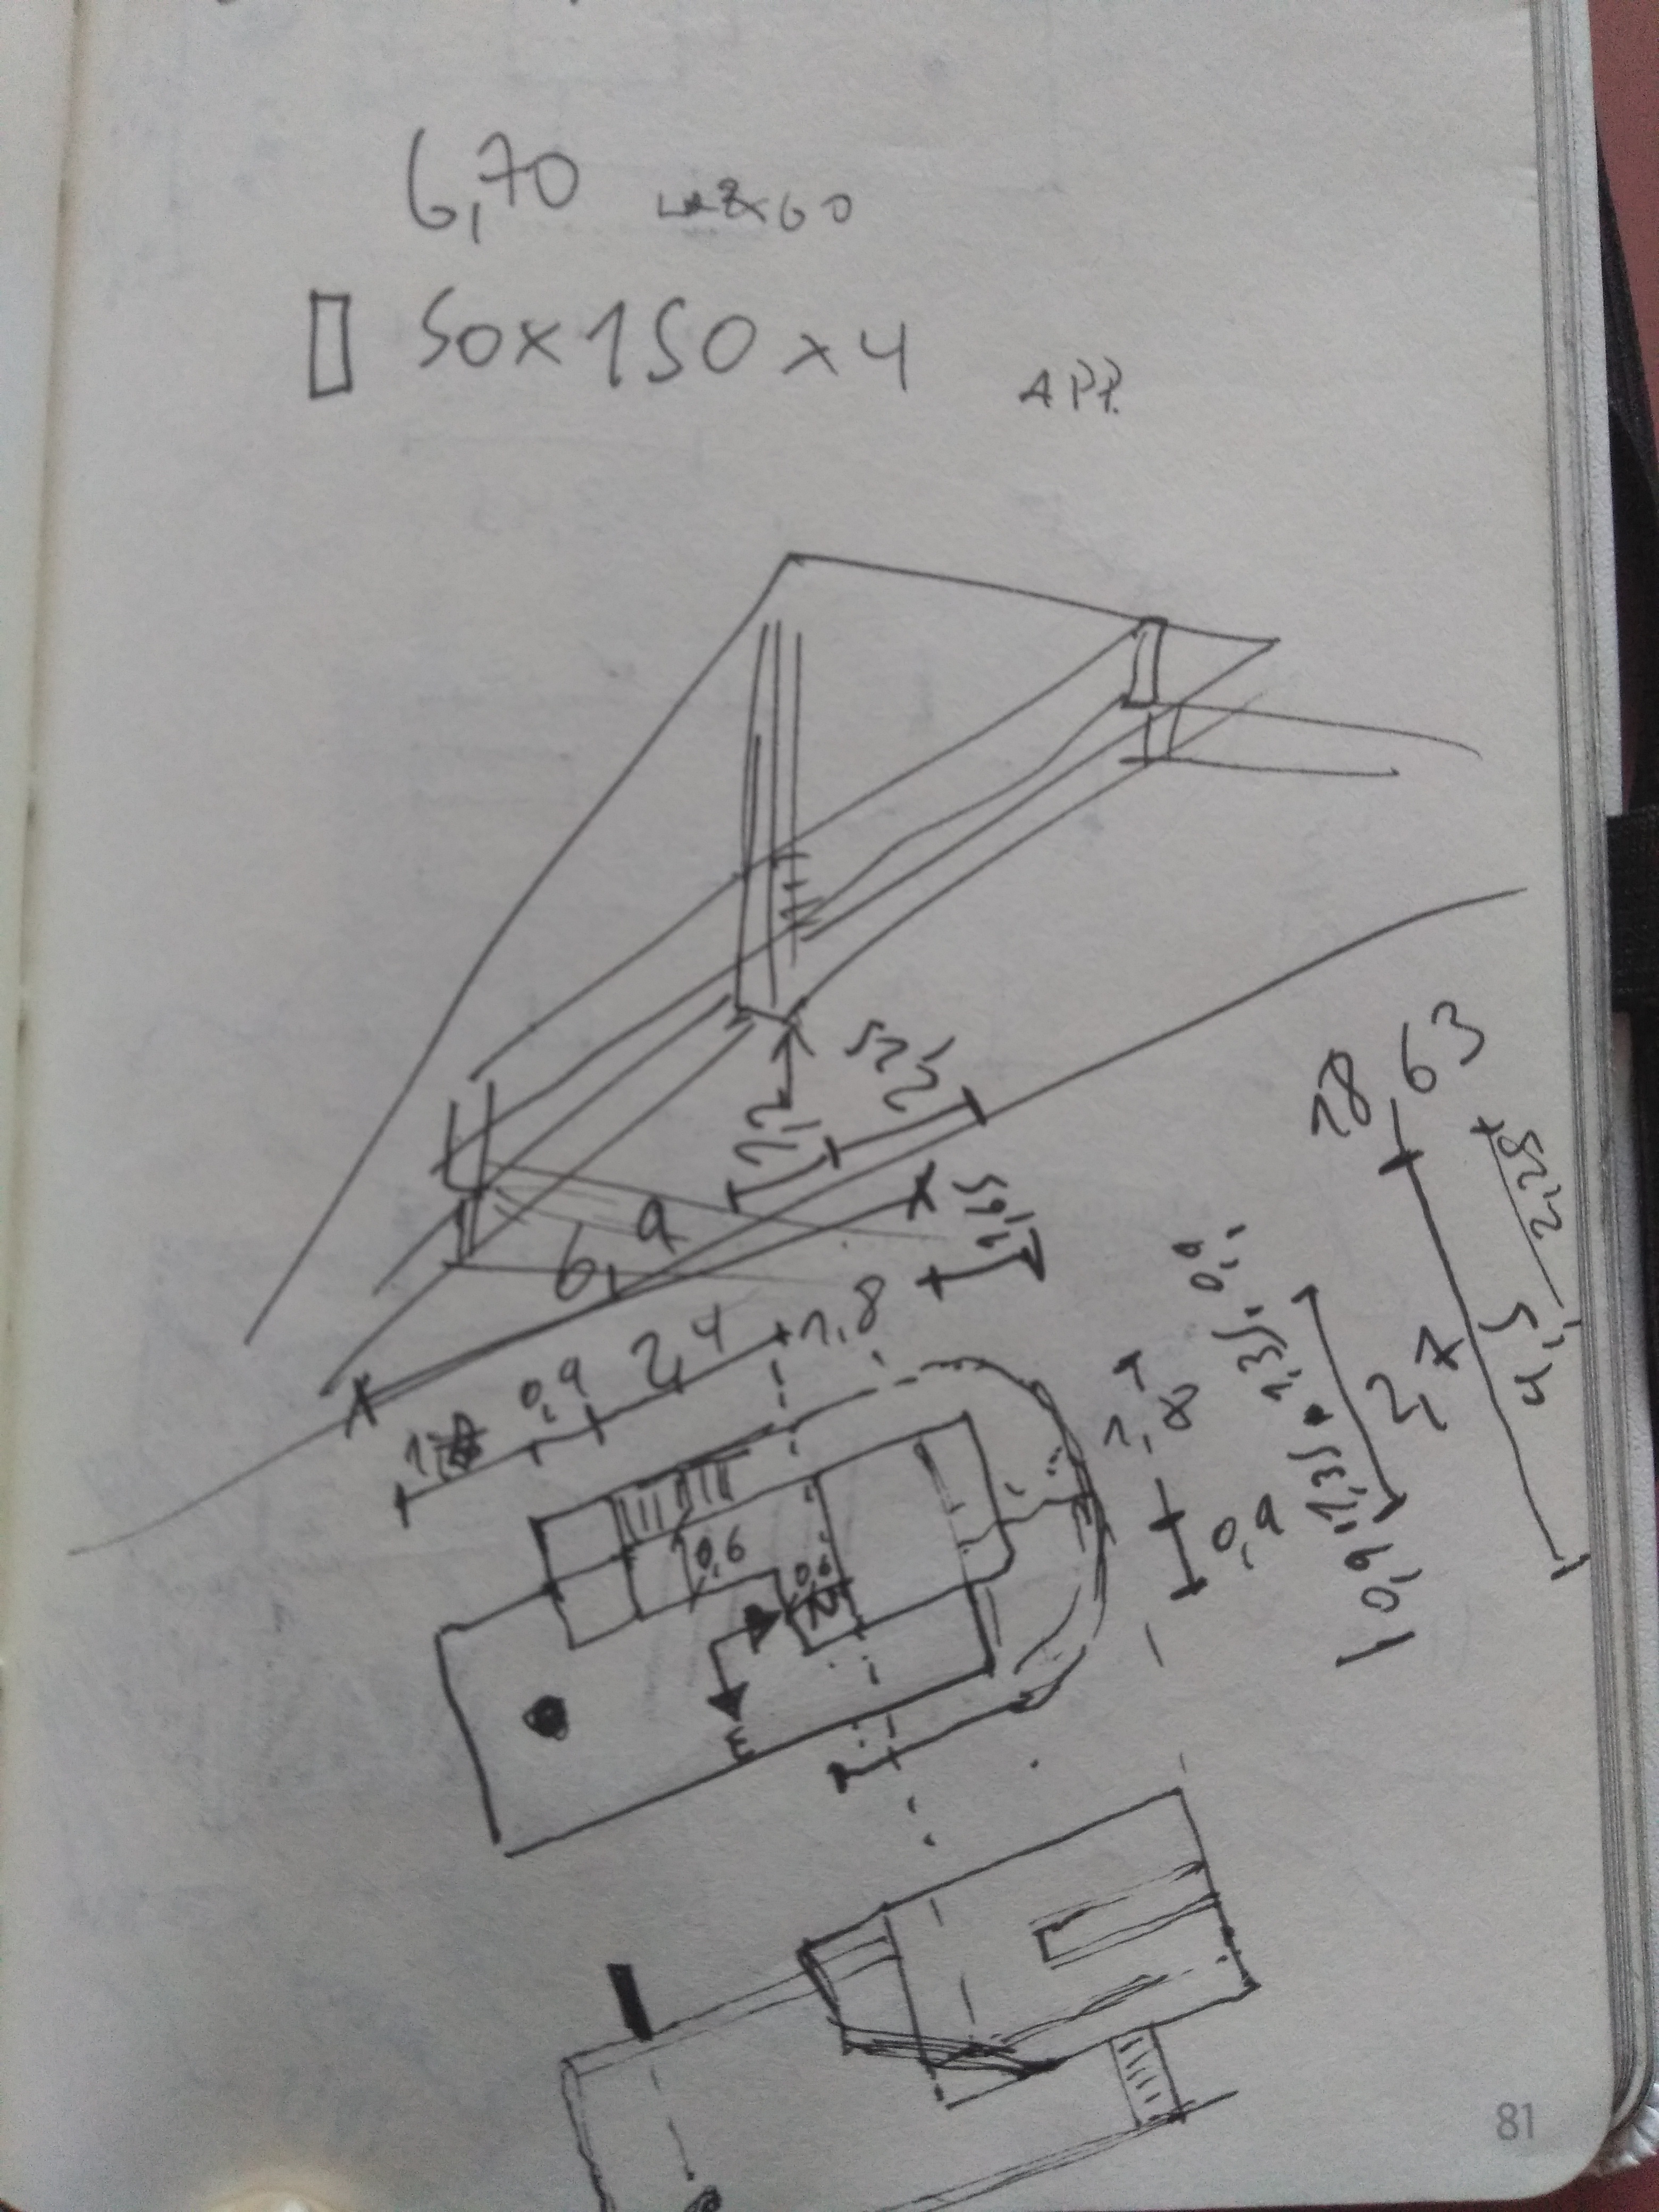 6,70 LARGO
50x150x4 APP.
2,25
1,2
63
18
2,25
6,9
1,65
0,9
1,8
2,4
0,9
1,35
2,7
4,5
1,8
0,9
1,35
0,9
0,6
0,6
N
E
81